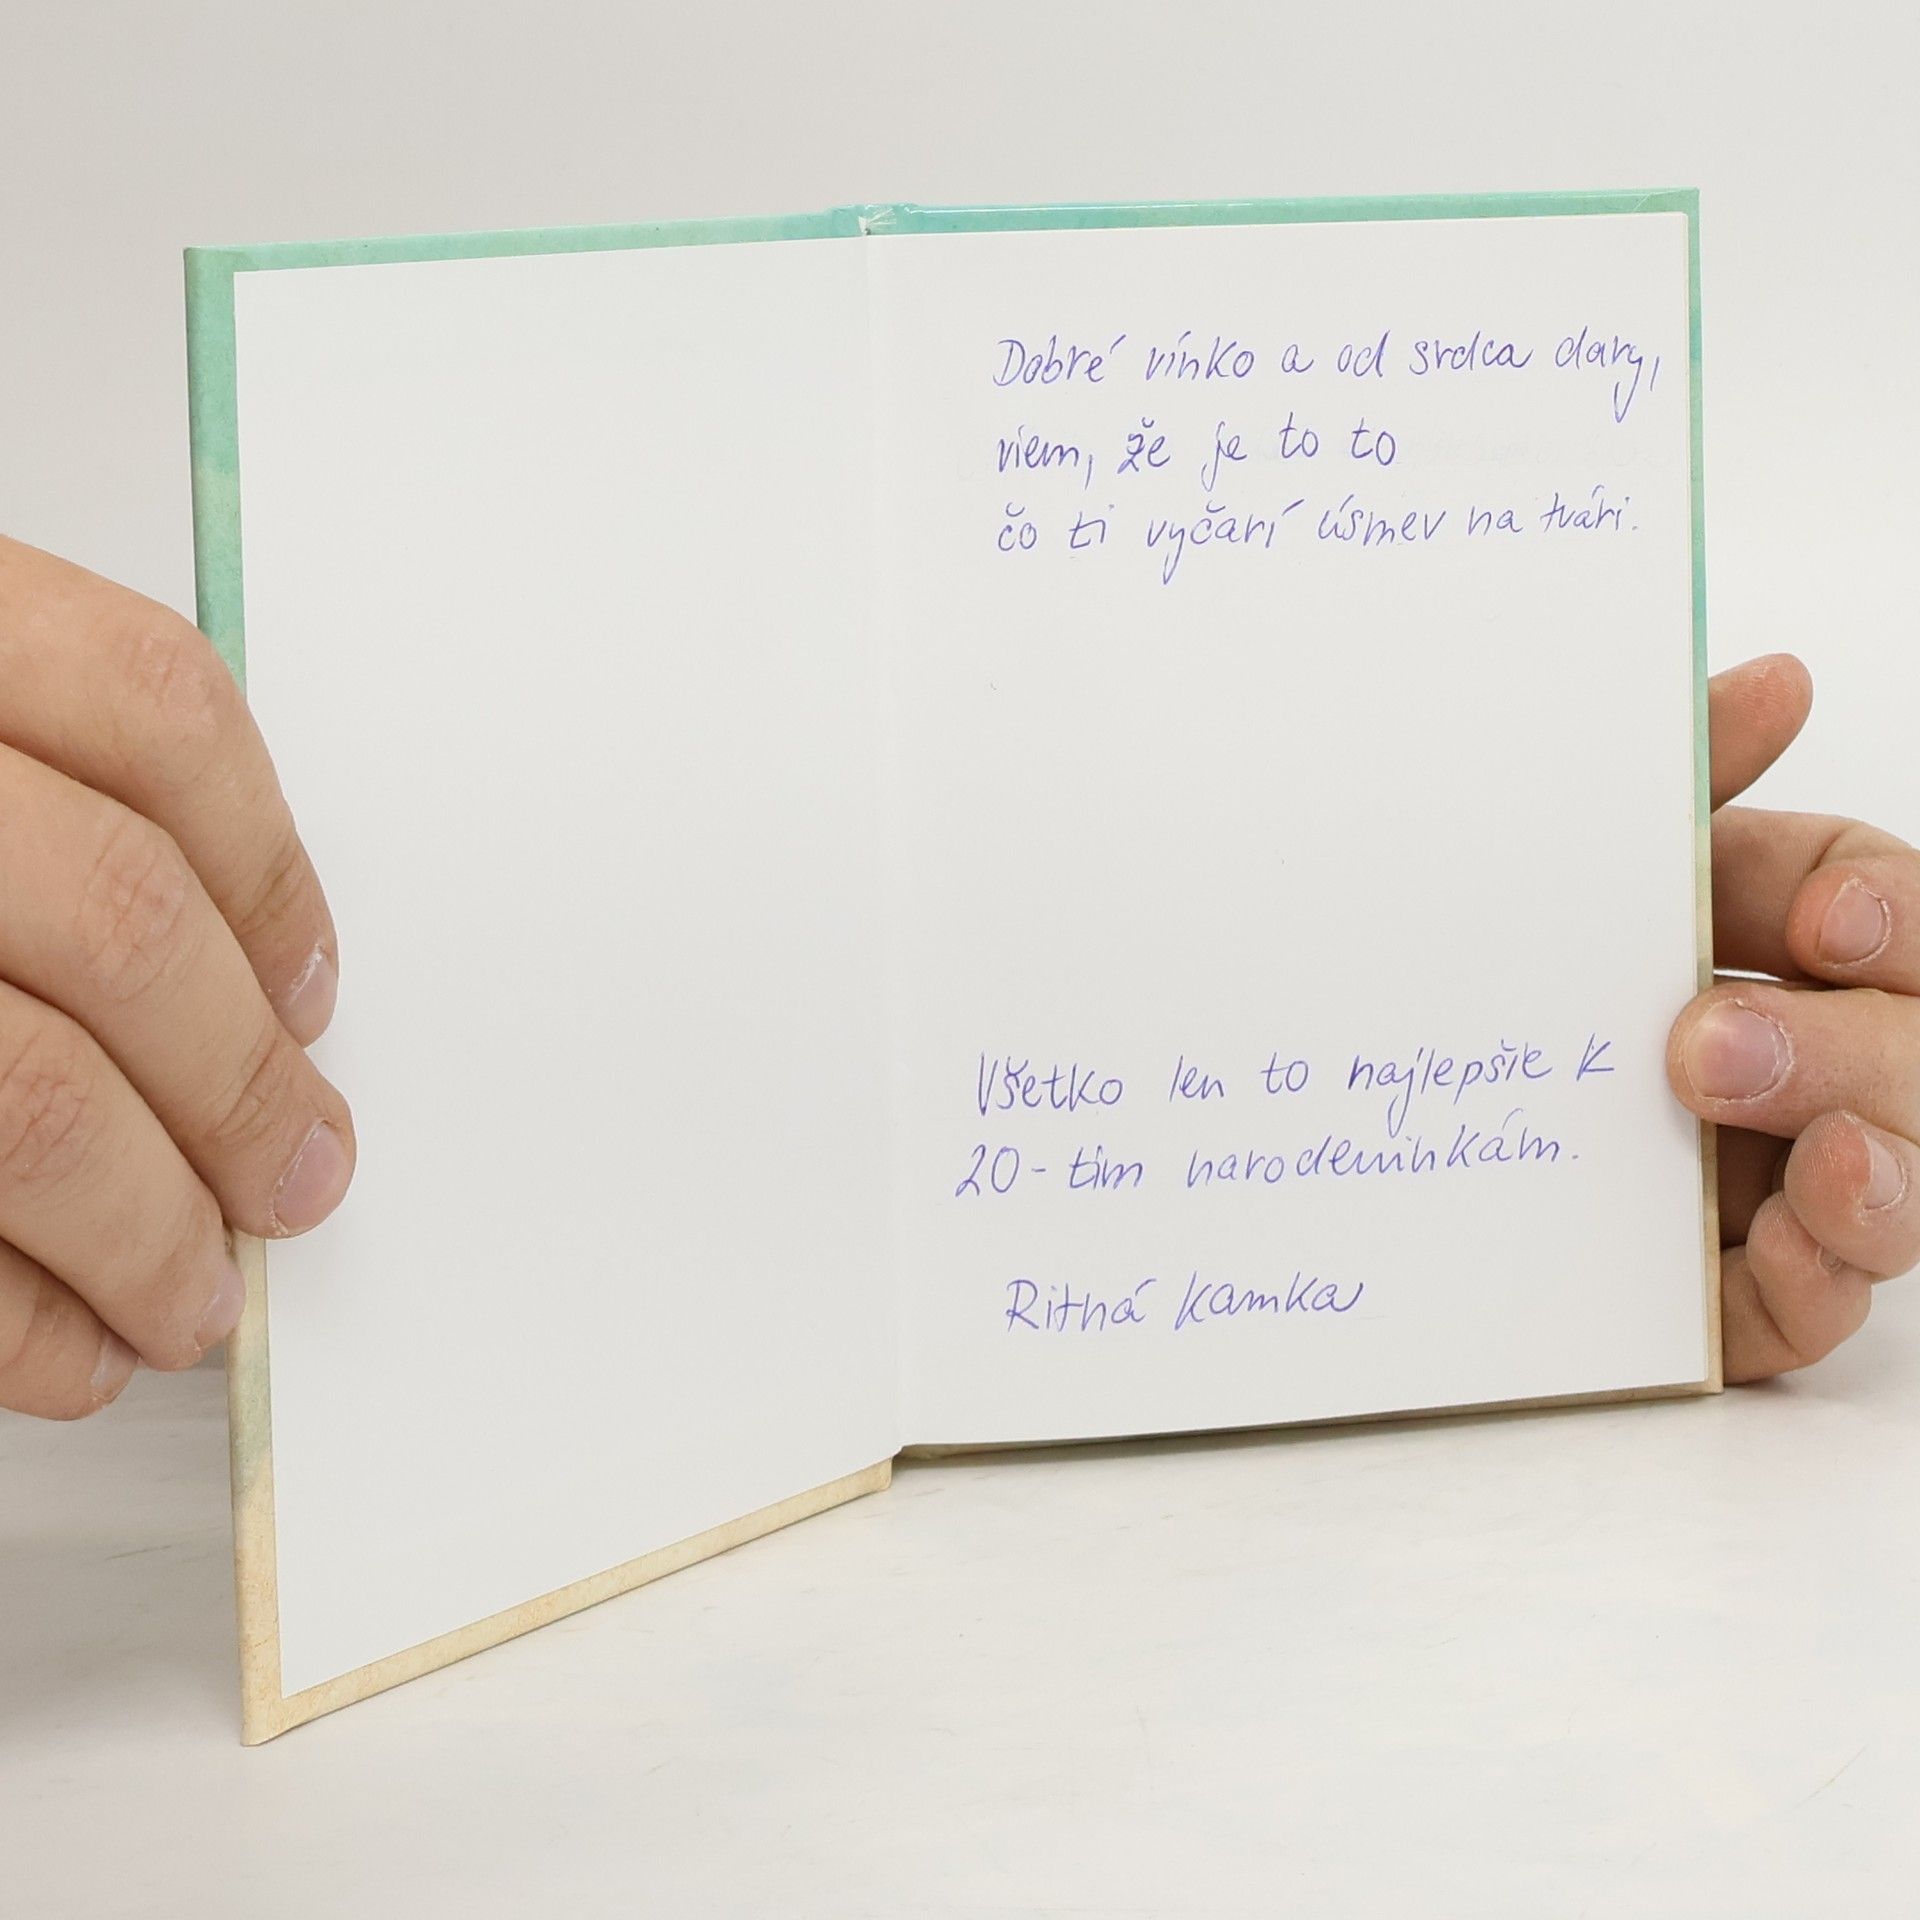 Dobré vínko a od srdca dary,
viem, že je to to
čo ti vyčarí úsmev na tvári.
Všetko len to najlepšie k
20-tim narodeninkám.
Ritná Kamka